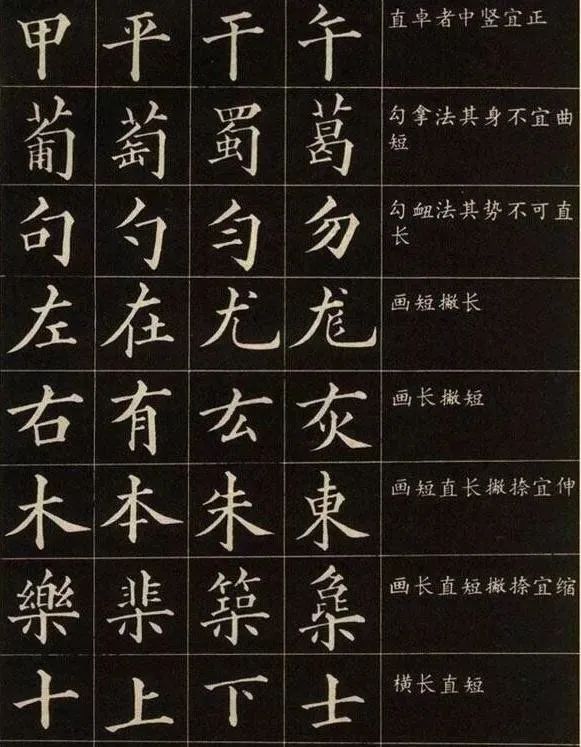 甲 平 干 午 直卓者中竖宜正
葡 萄 蜀 葛 勾拿法其身不宜曲
短
句 勺 匀 勿 勾衄法其势不可直
长
左 在 尤 尨 画短撇长
右 有 厷 灰 画长撇短
木 本 朱 東 画短直长撇捺宜伸
樂 築 画长直短撇捺宜缩
十 上 下 士 横长直短